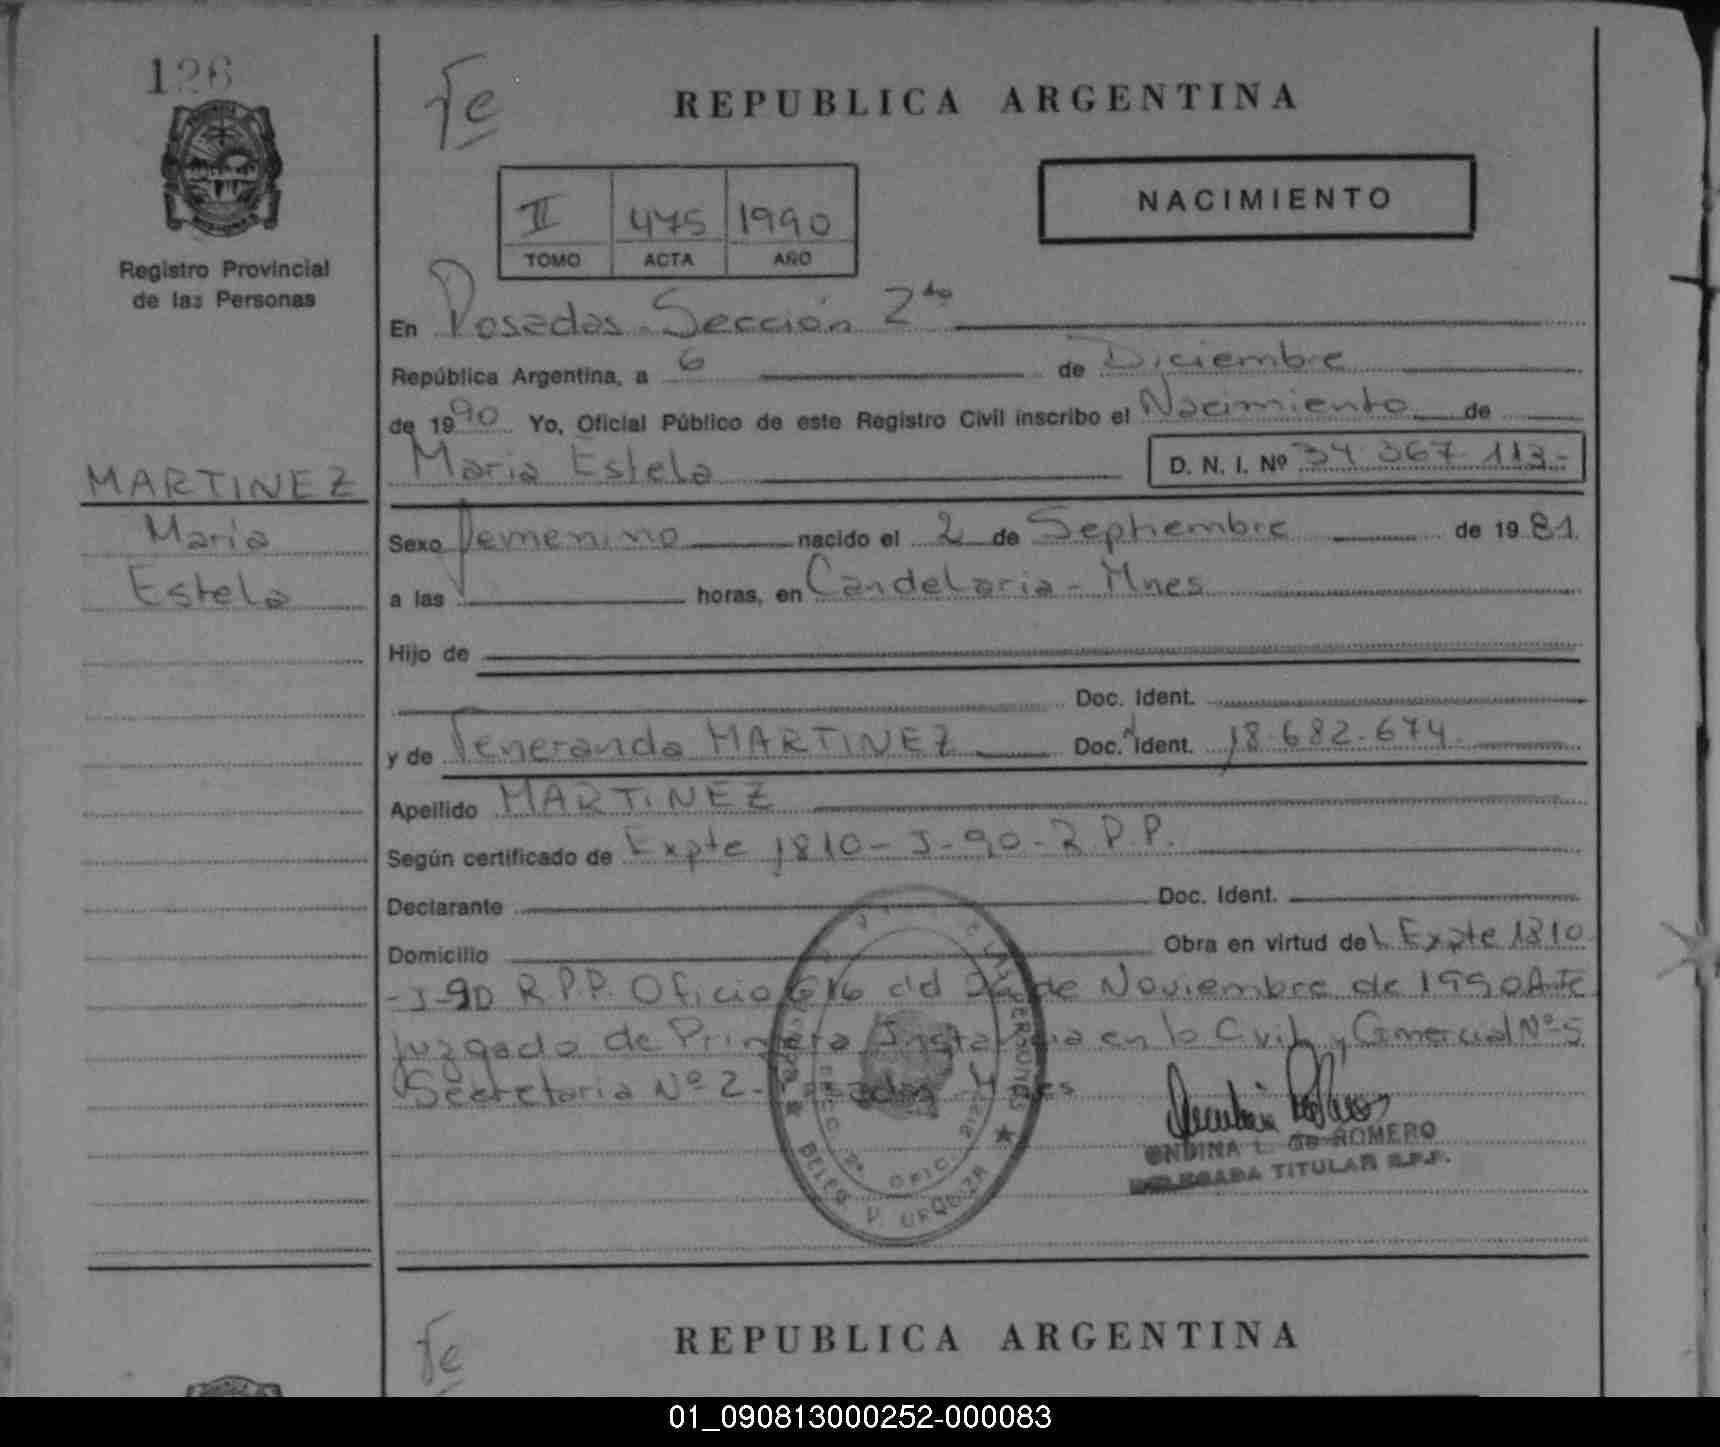 126
Fe
REPUBLICA ARGENTINA
NACIMIENTO
II 475 1990
TOMO ACTA AÑO
Registro Provincial
de las Personas
En Posadas Sección 2da
República Argentina, a 6 de Diciembre
de 1990 Yo, Oficial Público de este Registro Civil inscribo el Nacimiento de
Maria Estela D. N. I. Nº 34.367.113-
MARTINEZ
María
Estela
Sexo Femenino nacido el 2 de Septiembre de 1981.
a las horas, en Candelaria - Mnes
Hijo de
Doc. Ident.
y de Veneranda MARTINEZ Doc. Ident. 18.682.674
Apellido MARTINEZ
Según certificado de Expte 1810-J-90-R.P.P.
Declarante Doc. Ident.
Domicilio Obra en virtud del Expte 1810
-J-90 R.P.P. Oficio 616 del de Noviembre de 1990 Ante
Juzgado de Primera Instancia en lo Civil y Comercial Nº 5
Secretaria Nº 2-
ONDINA L. de ROMERO
DELEGADA TITULAR R.P.P.
OFIC.
URQUIZA
Fe
REPUBLICA ARGENTINA
01_090813000252-000083